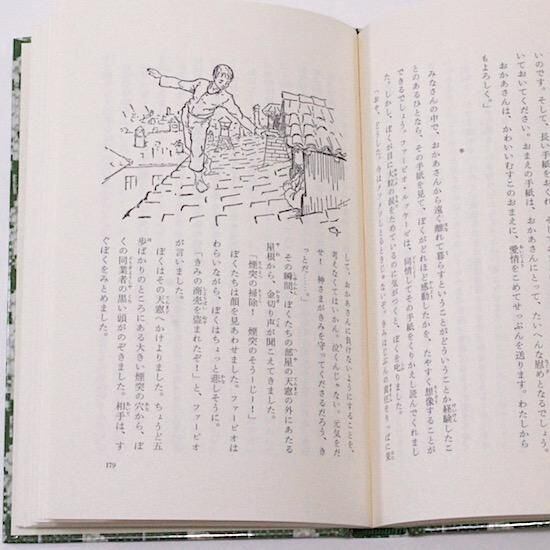 いのです。そして、長い手紙をか
いておいてください。おまえの手紙は、おかあさんにとって、たいへん慰めとなるでしょう。
おかあさんは、かわいいむすこのおまえに、愛情をこめてせっぷんを送ります。わたしから
もよろしく。」
*
みなさんの中で、おかあさんから遠く離れて暮らすということがどういうことか経験したこ
とのあるひとなら、その手紙を見て、ぼくがどれほど感動したかを、たやすく想像することが
できるでしょう。ファービオ・ルッケーゼは、同情してその手紙をくりかえし読んでくれまし
た。しかし、ぼくが目に大粒の涙をためているのに気がつくと、ぼくを叱りました。
して、おかあさんに負けないようにすることを、
考えなくてはいかん。泣くんじゃない。元気をだ
せ！神さまがきみを守ってくださるだろう、き
っとだ……」
その瞬間、ぼくたちの部屋の天窓の外にあたる
屋根から、金切り声が聞こえてきました。
「煙突の掃除！　煙突のそう－じー！」
ぼくたちは顔を見あわせました。ファービオは
わらいながら、ぼくはちょっと悲しそうに。
「きみの商売を盗まれたぞ！」と、ファービオ
が言いました。
ぼくはその天窓へかけよりました。ちょうど五
歩ばかりのところにある大きい煙突の穴から、ぼ
くの同業者の黒い頭がのぞきました。相手は、す
ぐぼくをみとめました。
179